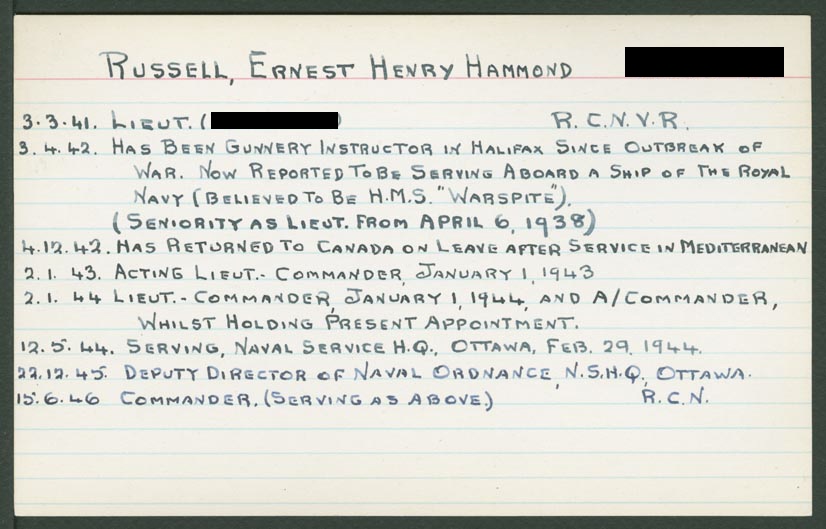 RUSSELL, ERNEST HENRY HAMMOND
3.3.41. LIEUT. ( ) R.C.N.V.R.
3.4.42. HAS BEEN GUNNERY INSTRUCTOR IN HALIFAX SINCE OUTBREAK OF
WAR. NOW REPORTED TO BE SERVING ABOARD A SHIP OF THE ROYAL
NAVY (BELIEVED TO BE H.M.S. "WARSPITE").
(SENIORITY AS LIEUT. FROM APRIL 6, 1938)
4.12.42. HAS RETURNED TO CANADA ON LEAVE AFTER SERVICE IN MEDITERRANEAN
2.1.43. ACTING LIEUT.-COMMANDER, JANUARY 1, 1943
2.1.44 LIEUT.-COMMANDER, JANUARY 1, 1944, AND A/COMMANDER,
WHILST HOLDING PRESENT APPOINTMENT.
12.5.44. SERVING, NAVAL SERVICE H.Q., OTTAWA, FEB. 29, 1944.
22.12.45. DEPUTY DIRECTOR OF NAVAL ORDNANCE, N.S.H.Q., OTTAWA.
15.6.46 COMMANDER. (SERVING AS ABOVE.) R.C.N.